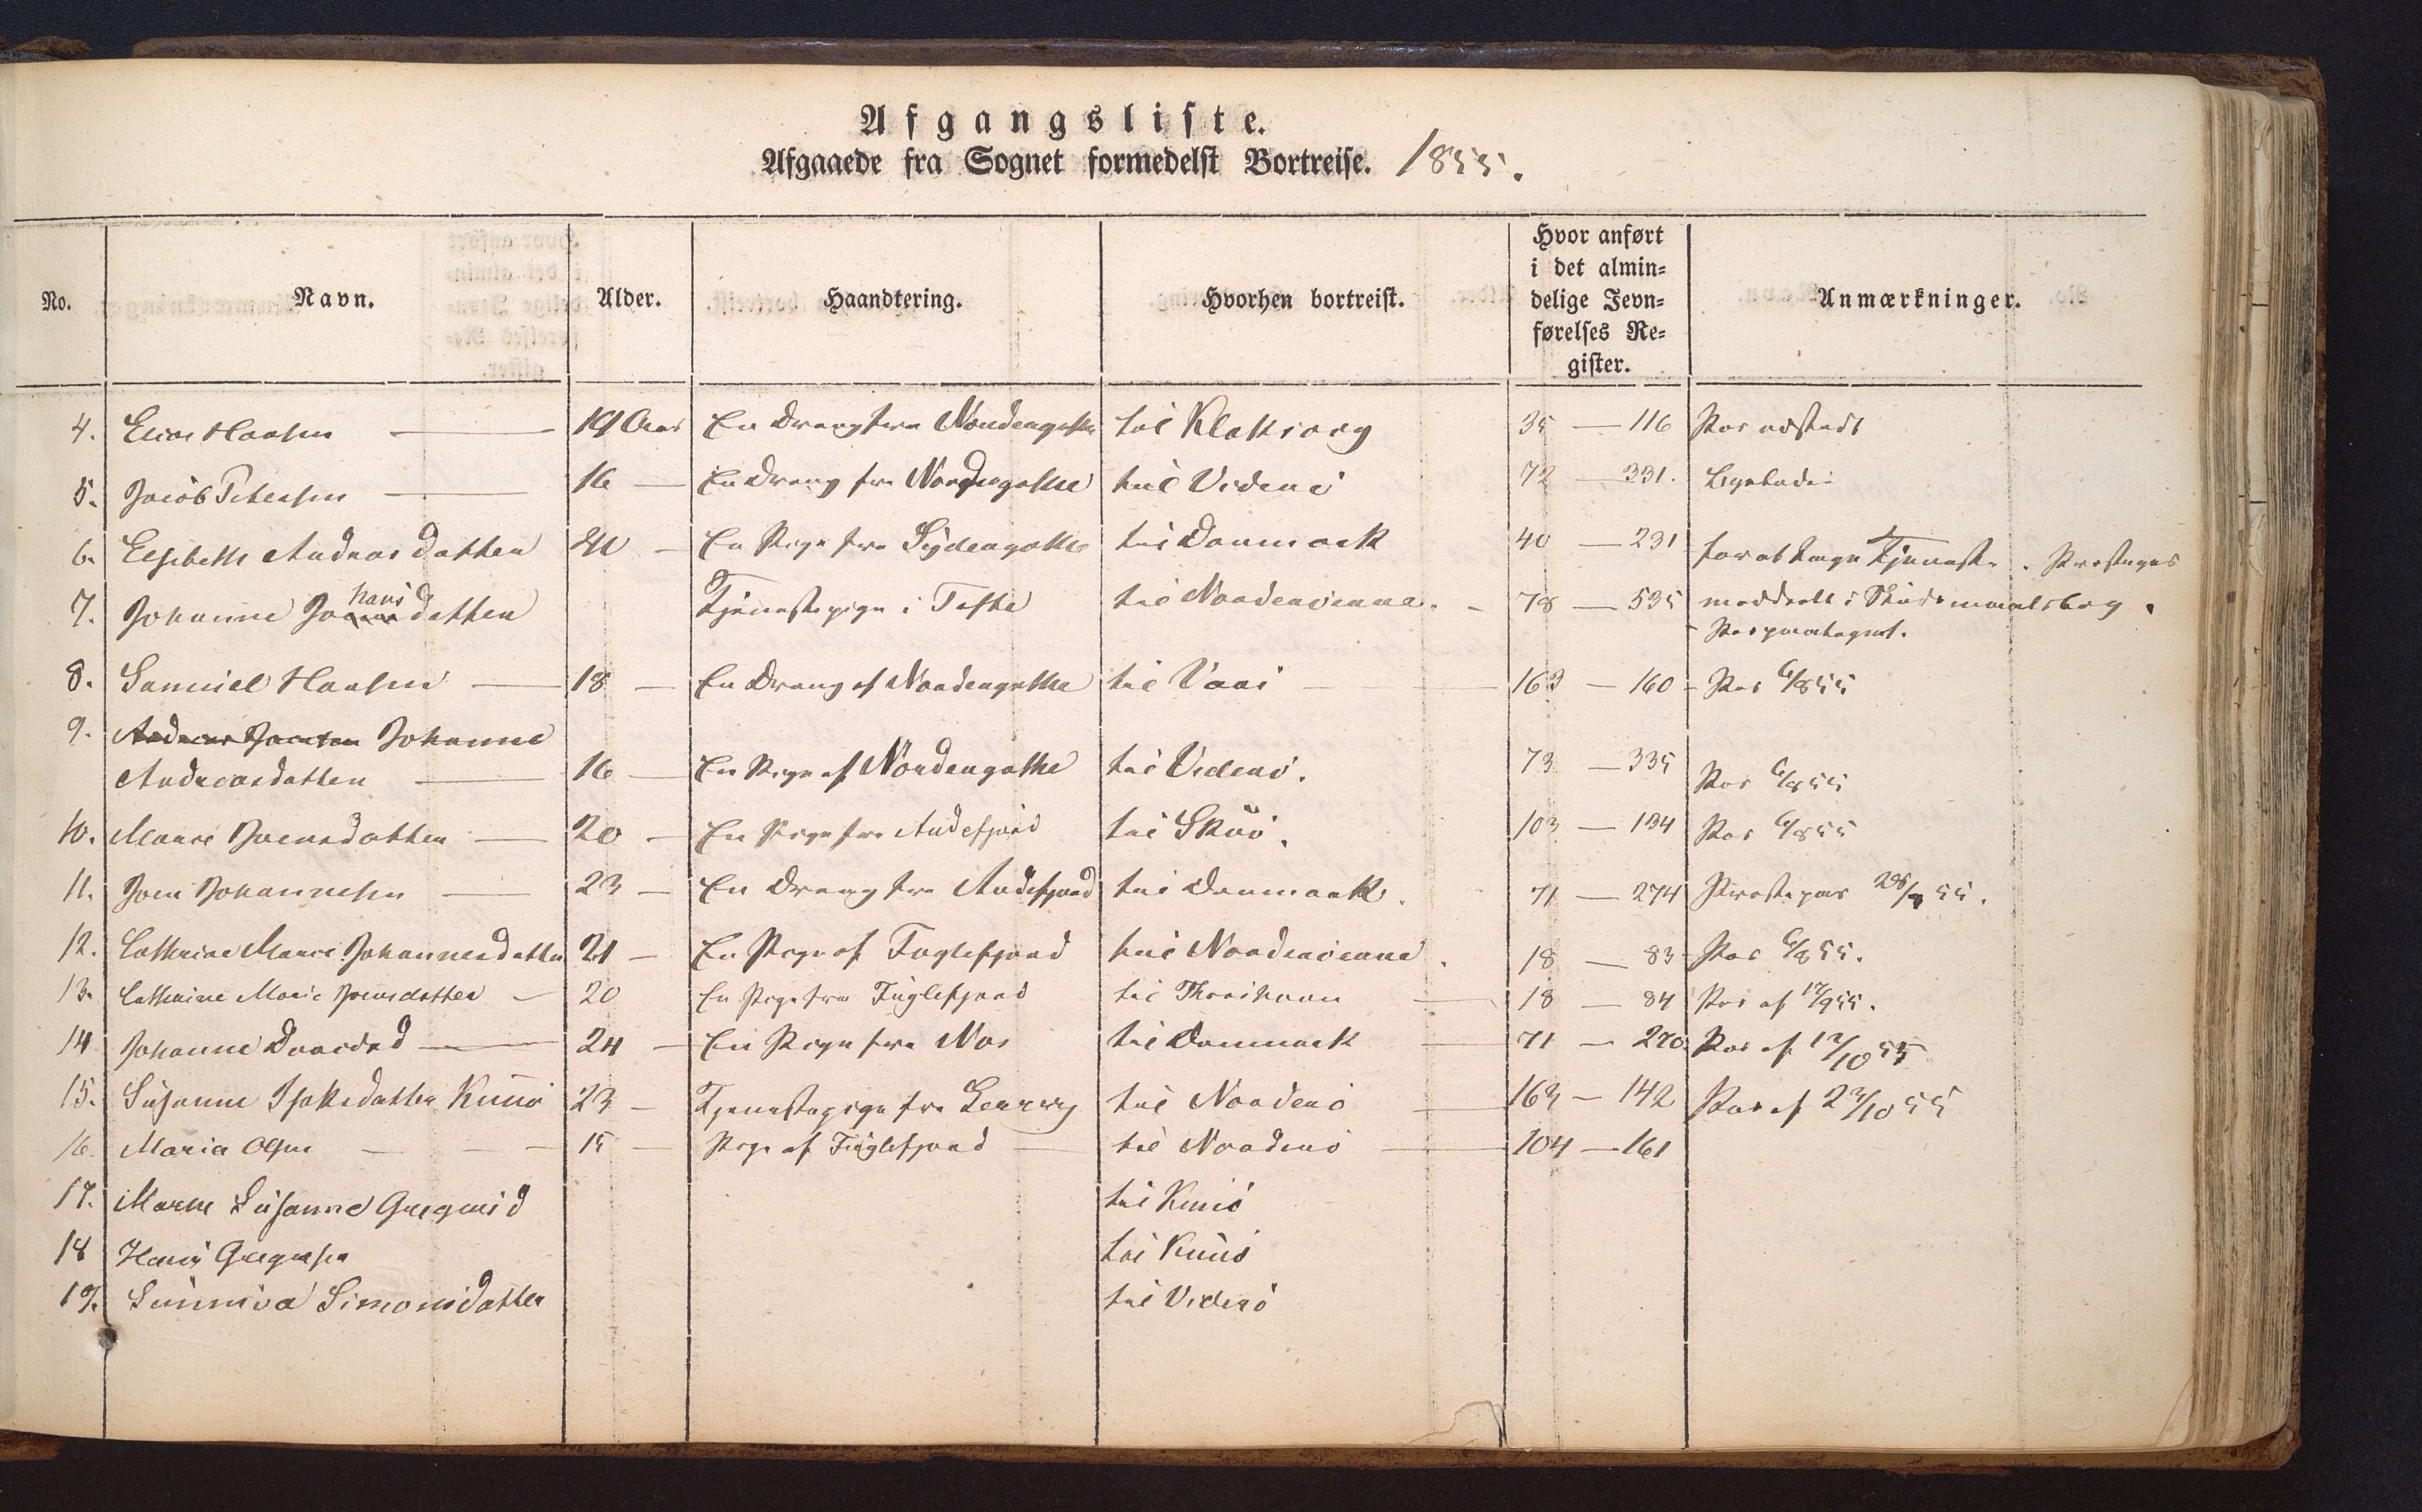 Afgangsliste.
Afgaaede fra Sognet formedelst Bortreise. 1855.
No. Navn. Alder. Haandtering. Hvorhen bortreist. Hvor anført i det almin= delige Jevn= førelses Re= gister. Anmærkninger.
4. Elias Hansen 19 Aar En Dreng fra Nordregøthe til Klaksvig 35 — 116 Pas udstedt
5. Jacob Petersen 16 En Dreng fra Nordregøthe til Viderö 72 — 331. Ligeledes
6. Elsebeth Andreasdatter 20 En Pige fra Sydregøthe til Danmark 40 — 231 for at tage Tjeneste. Præstepas
7. Johanne Joensdatter Tjenestepige i Tofte til Norderöerne. 78 — 535 meddeelt i Skudsmaalsbog.
hans
Pas
8. Samuel Hansen 18 En Dreng af Nordregøthe til Vaai 163 — 160 Pas 6/8 55
9. Andreas Joensen Johanne
Andreasdatter 16 En Pige af Nordregøthe til Viderö. 73 — 335 Pas 6/8 55
10. Maria Joensdatter 20 En Pige fra Andefjord til Skuö. 103 — 134 Pas 6/8 55
11. Joen Johannesen 23 En Dreng fra Andefjord til Danmark. 71 — 274 Præstepas 28/8 55.
12. Cathrine Marie Johannesdatter 21 En Pige af Fuglefjord til Norderöerne. 18 — 83 Pas 6/8 55.
13. Cathrine Marie Joensdatter 20 En Pige fra Fuglefjord til Thorshavn 18 — 84 Pas af 17/9 55.
14 Johanne Davidsd 24 En Pige fra Næs til Danmark 71 — 270. Pas af 12/10 55
15. Susanne Isaksdatter Kunö 23 Tjenestepige fra Lervig til Norderö 163 — 142 Pas af 23/10 55
16. Maria Olsen 15 Pige af Fuglefjord til Norderö 104 — 161
17. Maren Susanne Gregersd til Kunö
18 Hans Gregersen til Kunö
19. Sunniva Simonsdatter til Viderö